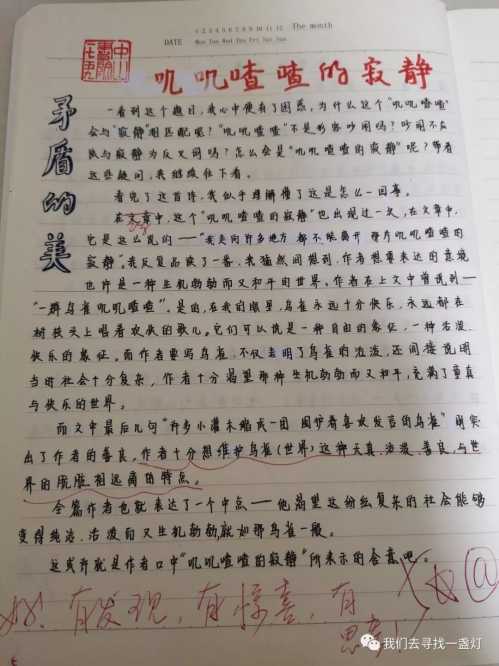 1 2 3 4 5 6 7 8 9 10 11 12 The month
DATE Mon Tue Wed Thu Fri Sat Sun
中山書院
七五九
叽叽喳喳的寂静
矛盾的美
一看到这个题目，我心中便有了困惑，为什么这个“叽叽喳喳”
会与“寂静”相匹配呢？“叽叽喳喳”不是形容吵闹吗？吵闹不应
该与寂静为反义词吗？怎么会是“叽叽喳喳的寂静”呢？带着
这些疑问，我继续往下看。
看完了这首诗，我似乎理解懂了这是怎么一回事。
在文章中，这个“叽叽喳喳的寂静”也出现过一次，在文章中，
它是这么说的——“我走向许多地方 都不能离开 那片叽叽喳喳的
寂静”。我反复品味了一番，我猛然间想到，作者想要表达的意境
也许是一种生机勃勃而又和平的世界。作者在上文中曾说到——
“一群鸟雀叽叽喳喳”，是的，在我们眼里，鸟雀永远十分快乐，永远都在
树枝头上唱着欢快的歌儿。它们可以说是一种自由的象征，一种活泼、
快乐的象征。而作者要写鸟雀，不仅表明了鸟雀的活泼，还间接说明
当时社会十分复杂，作者十分渴望那种生机勃勃而又和平，充满了童真
与快乐的世界。
而文中最后几句“许多小灌木缩成一团 围护着喜欢发言的鸟雀”则突
出了作者的善良，作者十分想维护鸟雀（世界）这种天真、活泼、善良，与世
界的肮脏相远离的特点。
全篇作者也就表达了一个中点——他渴望这纷纭复杂的社会能够
变得纯洁、活泼而又生机勃勃，就如那鸟雀一般。
这或许就是作者口中“叽叽喳喳的寂静”所表示的含意吧。
好！有发现，有惊喜，有
思考！
我们去寻找一盏灯